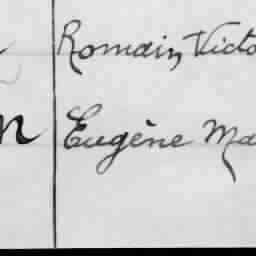 Romain, Victo
n Eugène Ma